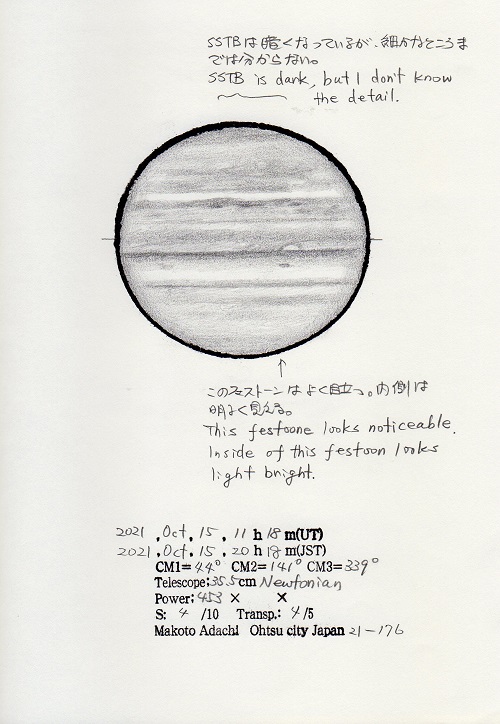 SSTBは暗くなっているが、細かなところま
では分からない。
SSTB is dark, but I don't know
the detail.
このフェストーンはよく目立つ。内側は
明るく見える。
This festoone looks noticeable.
Inside of this festoon looks
light bright.
2021 , Oct, 15 , 11 h 18 m(UT)
2021 , Oct, 15 , 20 h 18 m(JST)
CM1= 44° CM2= 141° CM3= 339°
Telescope; 35.5cm Newtonian
Power; 453 × ×
S: 4 /10 Transp.: 4 /5
Makoto Adachi Ohtsu city Japan 21-176